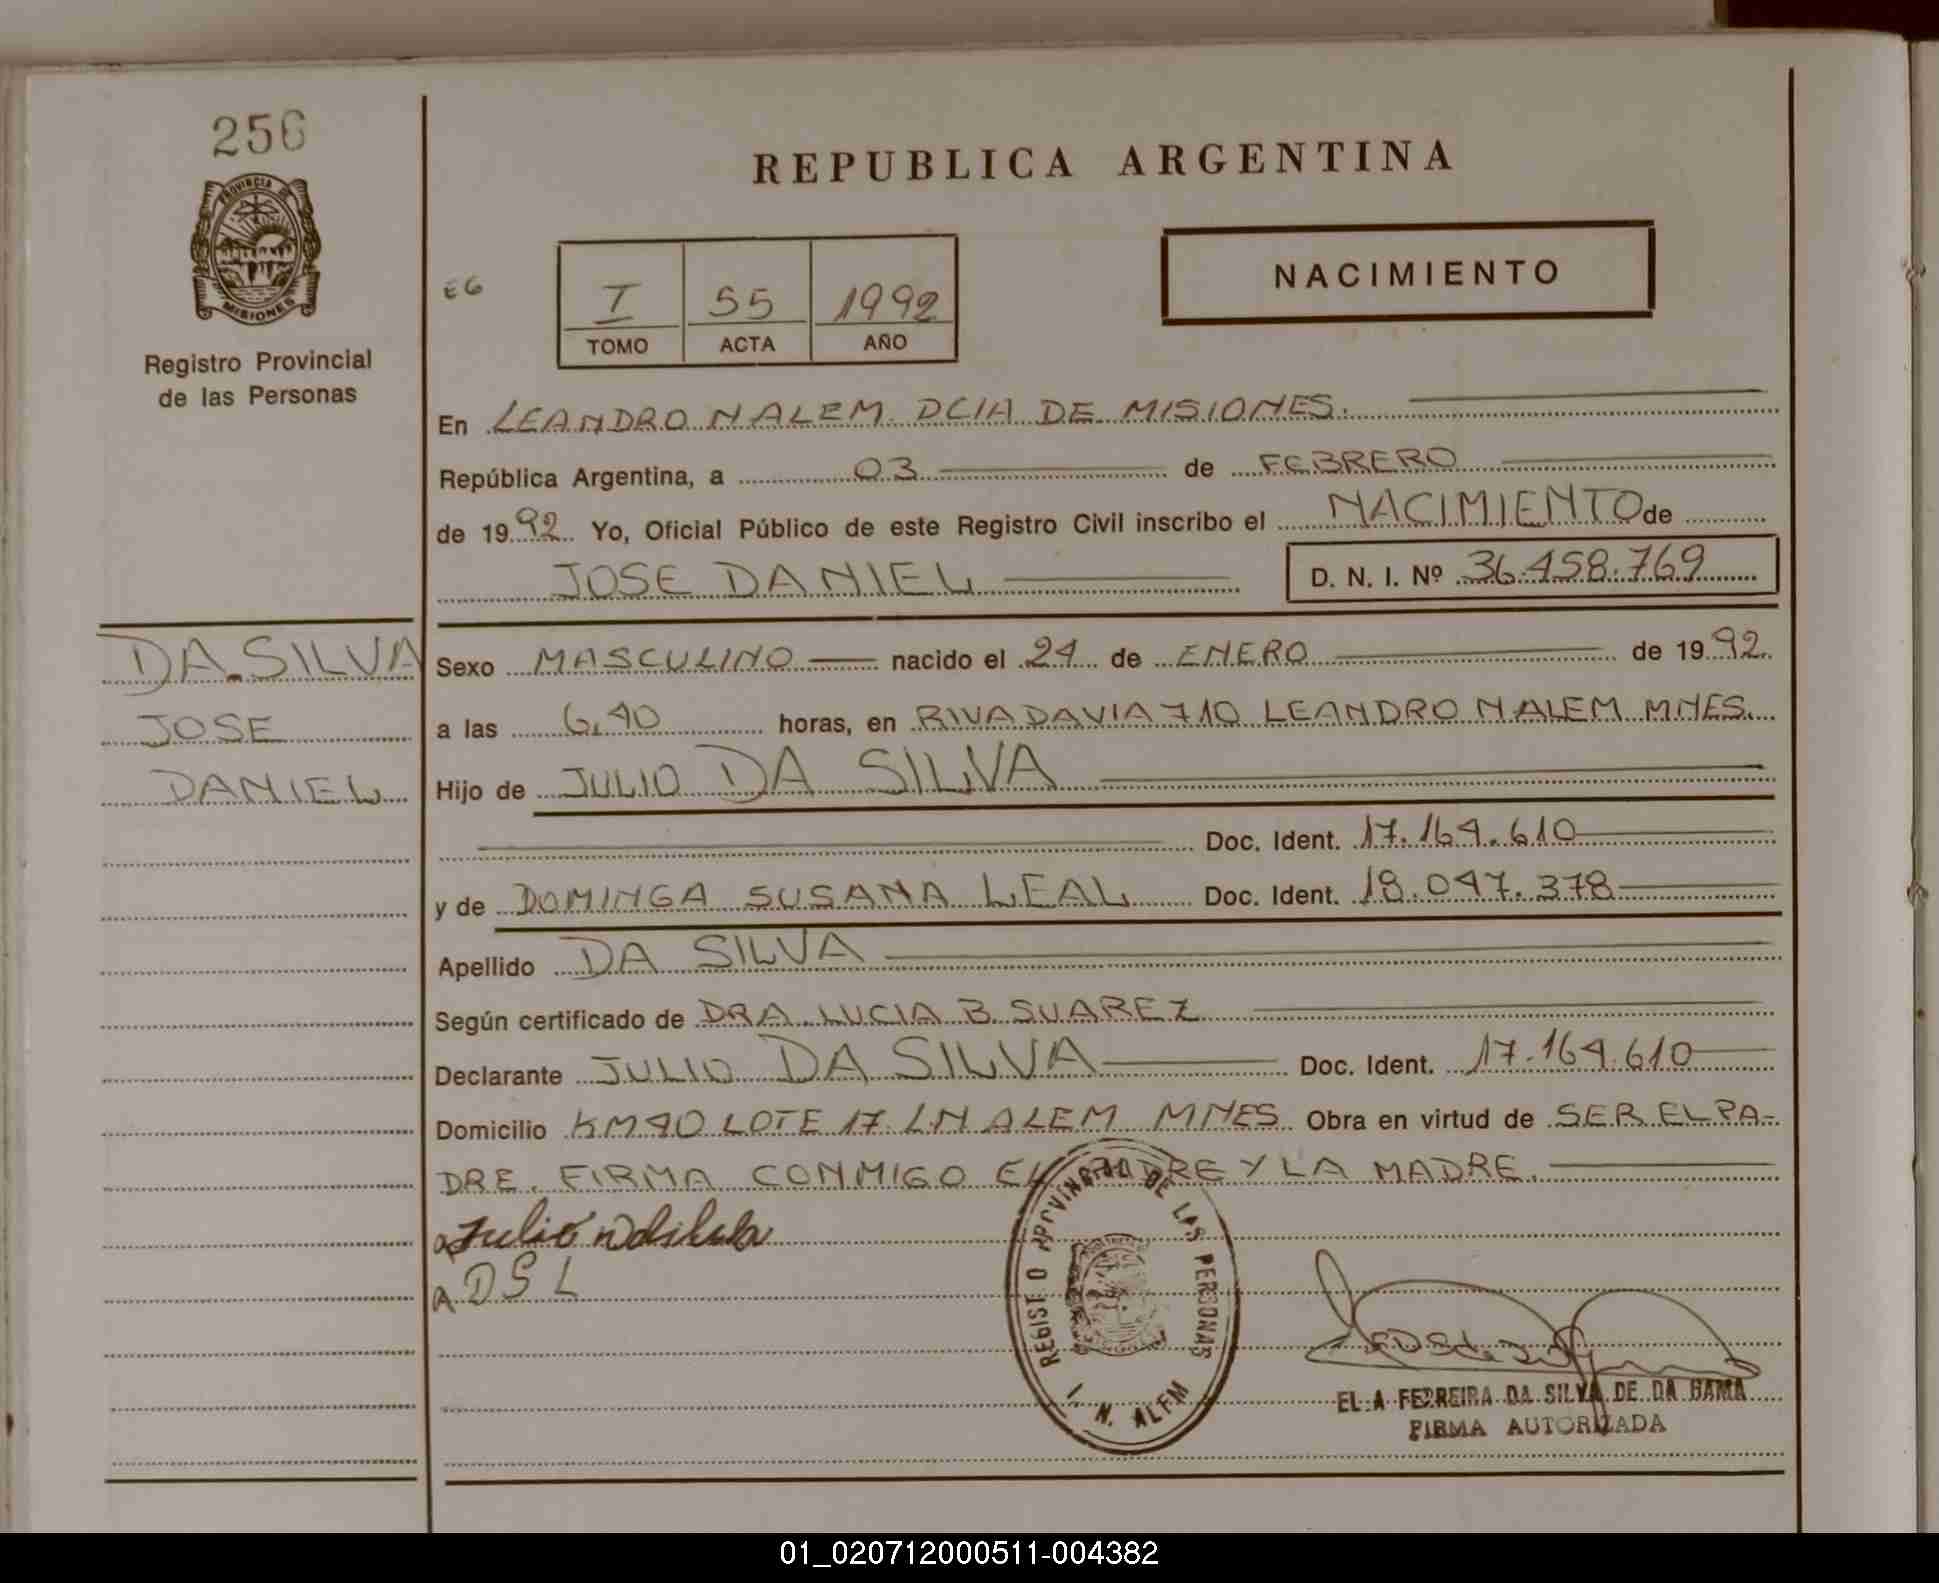 256
PROVINCIA DE
MISIONES
Registro Provincial
de las Personas
REPUBLICA ARGENTINA
E6
I 55 1992
TOMO ACTA AÑO
NACIMIENTO
En LEANDRO N ALEM PCIA DE MISIONES.
República Argentina, a 03 de FEBRERO
de 1992 Yo, Oficial Público de este Registro Civil inscribo el NACIMIENTO de
JOSE DANIEL D. N. I. Nº 36.458.769
DA SILVA
JOSE
DANIEL
Sexo MASCULINO nacido el 24 de ENERO de 1992
a las 6,40 horas, en RIVADAVIA 710 LEANDRO N ALEM MNES.
Hijo de JULIO DA SILVA
Doc. Ident. 17.164.610
y de DOMINGA SUSANA LEAL Doc. Ident. 18.047.378
Apellido DA SILVA
Según certificado de DRA LUCIA B SUAREZ
Declarante JULIO DA SILVA Doc. Ident. 17.164.610
Domicilio KM 40 LOTE 17 LN ALEM MNES Obra en virtud de SER EL PA-
DRE. FIRMA CONMIGO EL PADRE Y LA MADRE.
Julio
DSL
REGISTRO PROVINCIAL DE LAS PERSONAS
L. N. ALEM
FERREIRA DA SILVA DE DA GAMA
FIRMA AUTORIZADA
01_020712000511-004382